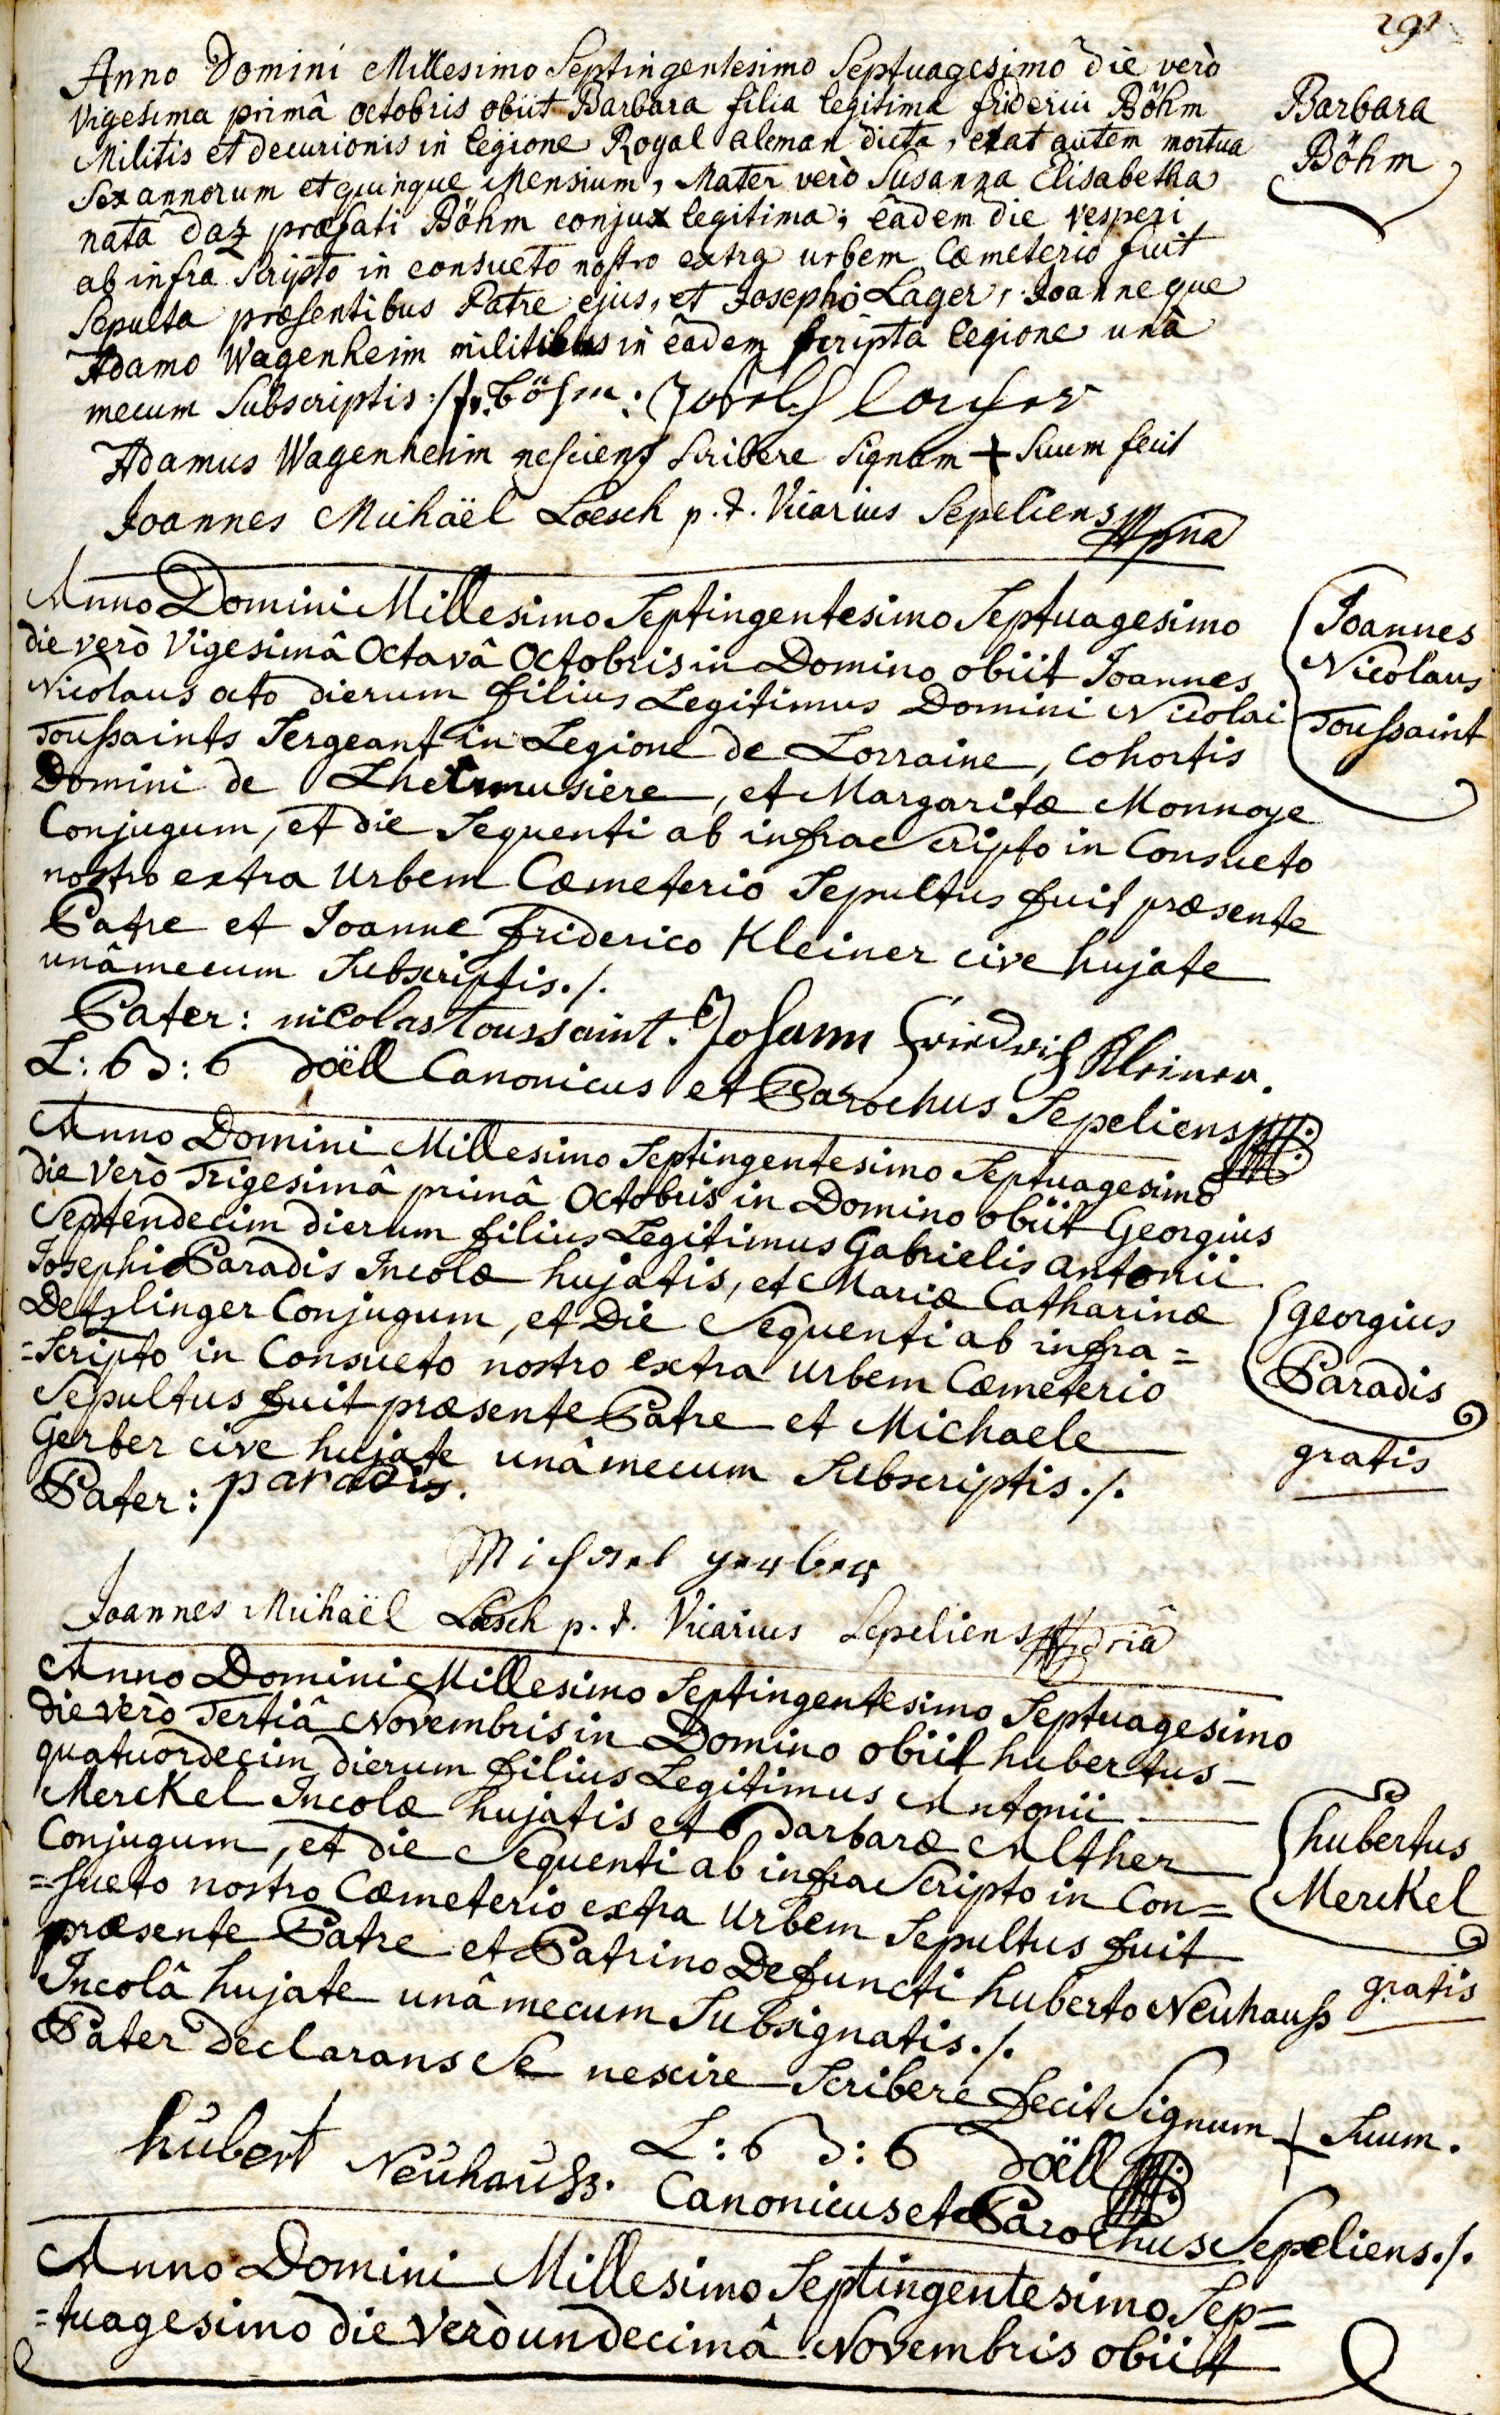 291
Anno Domini Millesimo Septingentesimo Septuagesimo die verò
Vigesima primâ octobris obiit Barbara filia legitima friderici Böhm
Militis et decurionis in legione Royal aleman dicta, erat autem mortua
Sex annorum et quinque Mensium, Mater verò Susanna Elisabetha
nata daz præfati Böhm conjux legitima; eâdem die vesperi
ab infra Scripto in consueto nostro extra urbem Cæmeterio fuit
Sepulta præsentibus Patre ejus, et Josepho Lager, Joanneque
Adamo Wagenheim militibus in eâdem scripta legione unà
mecum Subscriptis :/ fr. Böhm :
Adamus Wagenheim nesciens Scribere Signum + Suum fecit
Joannes Michäel Loesch p. t. Vicarius Sepeliens
Barbara
Böhm
Anno Domini Millesimo Septingentesimo Septuagesimo
die verò Vigesimâ Octavâ Octobris in Domino obiit Joannes
Nicolaus octo dierum filius Legitimus Domini Nicolai
Toussaints Sergeant in Legione de Lorraine, cohortis
Domini de Lhermusiere, et Margaritæ Monnoye
Conjugum, et die Sequenti ab infra Scripto in Consueto
nostro extra Urbem Cæmeterio Sepultus fuit præsente
Patre et Joanne friderico Kleiner cive hujate
unâ mecum Subscriptis ./.
Pater : nicolas Toussaint. Johann Friedrich Kleiner.
L: B: B Döell Canonicus et Parochus Sepeliens
Joannes
Nicolaus
Toussaint
Anno Domini Millesimo Septingentesimo Septuagesimo
die verò Trigesimâ primâ Octobris in Domino obiit Georgius
Septendecim dierum filius Legitimus Gabrielis antonii
Josephi Paradis Incolæ hujatis, et Mariæ Catharinæ
Detzlinger Conjugum, et Die Sequenti ab infra=
=Scripto in Consueto nostro extra Urbem Cæmeterio
Sepultus fuit præsente Patre et Michaele
Gerber cive hujate unâ mecum Subscriptis ./.
Pater : paradis.
Michael gerber
Joannes Michäel Lœsch p. t. Vicarius Sepeliens
Georgius
Paradis
gratis
Anno Domini Millesimo Septingentesimo Septuagesimo
die verò Tertiâ Novembris in Domino obiit hubertus
quatuordecim dierum filius Legitimus Antonii
Merckel Incolæ hujatis et Barbaræ Alther
Conjugum, et die Sequenti ab infra Scripto in Con=
=sueto nostro Cæmeterio extra Urbem Sepultus fuit
præsente Patre et Patrino Defuncti huberto Neuhauss
Incolâ hujate unâ mecum Subsignatis ./.
Pater declarans se nescire Scribere fecit Signum + Suum.
hübert Neühaüss. L: B: B Döell
Canonicus et Parochus Sepeliens ./.
hubertus
Merckel
gratis
Anno Domini Millesimo Septingentesimo Sep=
=tuagesimo die verò undecimâ Novembris obiit